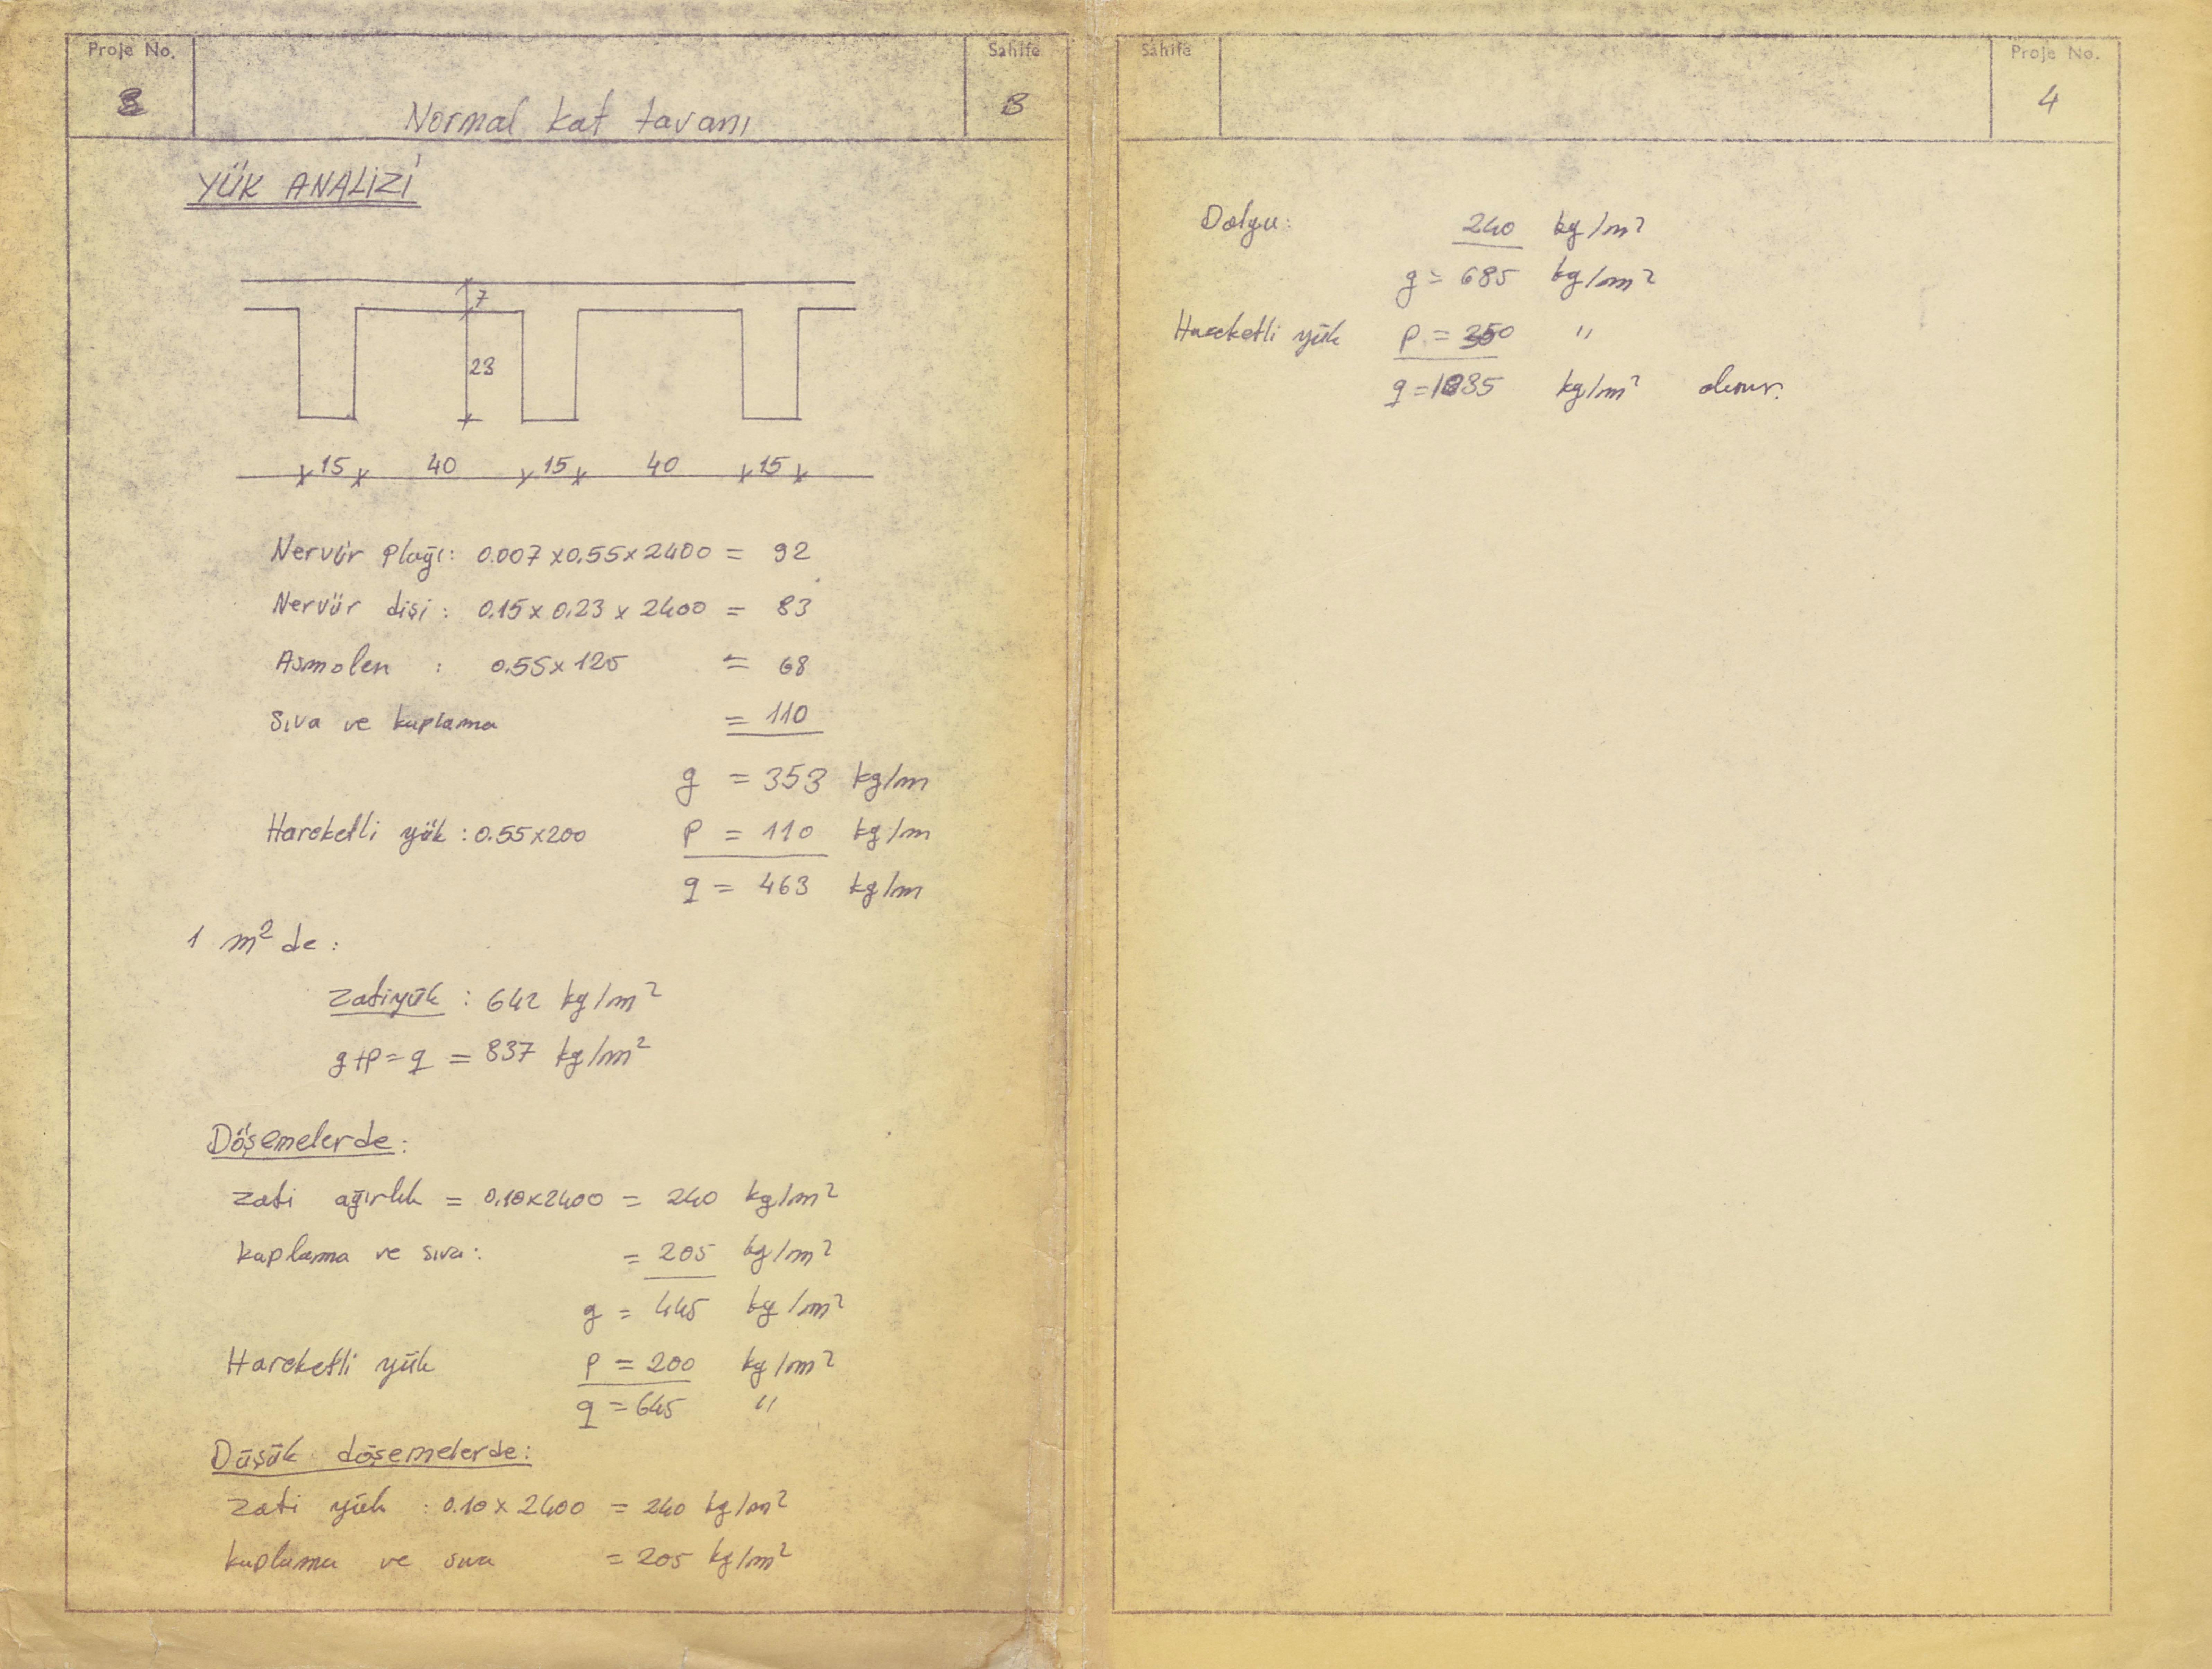 Proje No.
3
Normal kat tavanı
Sahife
3
YÜK ANALİZİ
7
23
15 40 15 40 15
Nervür plağı: 0.007x0.55x2400 = 92
Nervür dişi: 0.15x0.23x2400 = 83
Asmolen : 0.55x125 = 68
Sıva ve kaplama = 110
g = 353 kg/m
Hareketli yük : 0.55x200 p = 110 kg/m
q = 463 kg/m
1 m² de :
Zati yük : 642 kg/m²
g+p=q = 837 kg/m²
Döşemelerde:
Zati ağırlık = 0.10x2400 = 240 kg/m²
kaplama ve sıva: = 205 kg/m²
g = 445 kg/m²
Hareketli yük p = 200 kg/m²
q = 645 "
Düşük döşemelerde:
Zati yük : 0.10x2400 = 240 kg/m²
kaplama ve sıva = 205 kg/m²
Sahife
Proje No.
4
Dolgu: 240 kg/m²
g = 685 kg/m²
Hareketli yük p = 350 "
q = 1035 kg/m² alınır.